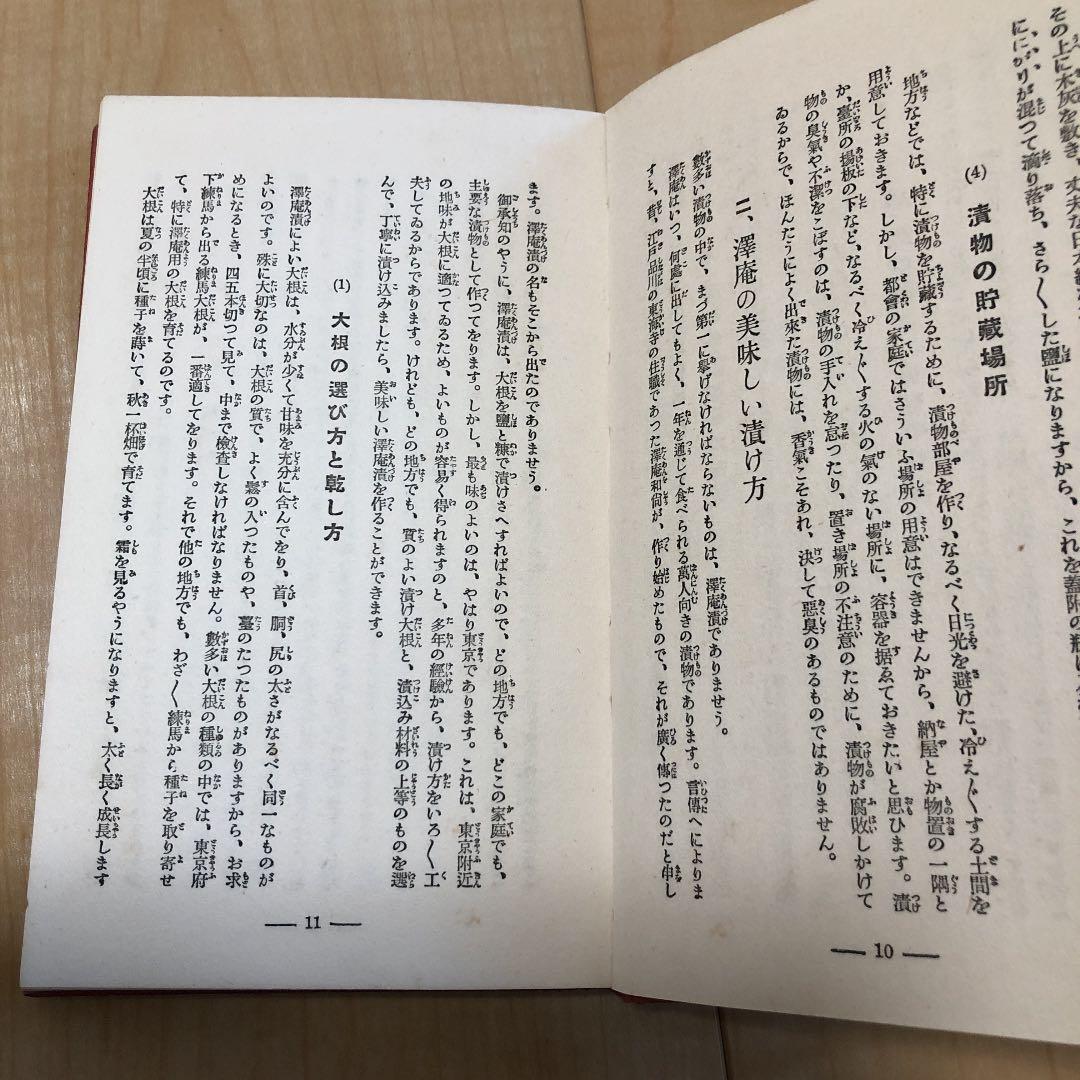 その上に木灰を敷き、丈夫な日本
にがりが混つて滴り落ち、さら〱した鹽になりますから、これを蓋附の
(4) 漬物の貯藏場所
地方などでは、特に漬物を貯藏するために、漬物部屋を作り、なるべく日光を避けた、冷えぐ〱する土間を
用意しておきます。しかし、都會の家庭ではさういふ場所の用意はできませんから、納屋とか物置の一隅と
か、臺所の揚板の下など、なるべく冷えぐ〱する火の氣のない場所に、容器を据ゑておきたいと思ひます。漬
物の臭氣や不潔をこぼすのは、漬物の手入れを怠つたり、置き場所の不注意のために、漬物が腐敗しかけて
ゐるからで、ほんたうによく出來た漬物には、香氣こそあれ、決して惡臭のあるものではありません。
二、澤庵の美味しい漬け方
數多い漬物の中で、まづ第一に擧げなければならないものは、澤庵漬でありませう。
澤庵はいつ、何處に出してもよく、一年を通じて食べられる萬人向きの漬物であります。言傳へによりま
すと、昔、江戸品川の東海寺の住職であつた澤庵和尙が、作り始めたもので、それが廣く傳つたのだと申し
— 10 —
ます。澤庵漬の名もそこから出たのでありませう。
御承知のやうに、澤庵漬は、大根を鹽と糠で漬けさへすればよいので、どの地方でも、どこの家庭でも、
主要な漬物として作つてをります。しかし、最も味のよいのは、やはり東京であります。これは、東京附近
の地味が大根に適つてゐるため、よいものが容易く得られますのと、多年の經驗から、漬け方をいろ〱工
夫してゐるからであります。けれども、どの地方でも、質のよい漬け大根と、漬込み材料の上等のものを選
んで、丁寧に漬け込みましたら、美味しい澤庵漬を作ることができます。
(1) 大根の選び方と乾し方
澤庵漬によい大根は、水分が少くて甘味を充分に含んでをり、首、胴、尻の太さがなるべく同一なものが
よいのです。殊に大切なのは、大根の質で、よく鬆の入つたものや、薹のたつたものがありますから、お求
めになるとき、四五本切つて見て、中まで檢査しなければなりません。數多い大根の種類の中では、東京府
下練馬から出る練馬大根が、一番適してをります。それで他の地方でも、わざ〱練馬から種子を取り寄せ
て、特に澤庵用の大根を育てるのです。
大根は夏の半頃に種子を蒔いて、秋一杯畑で育てます。霜を見るやうになりますと、太く長く成長します
— 11 —